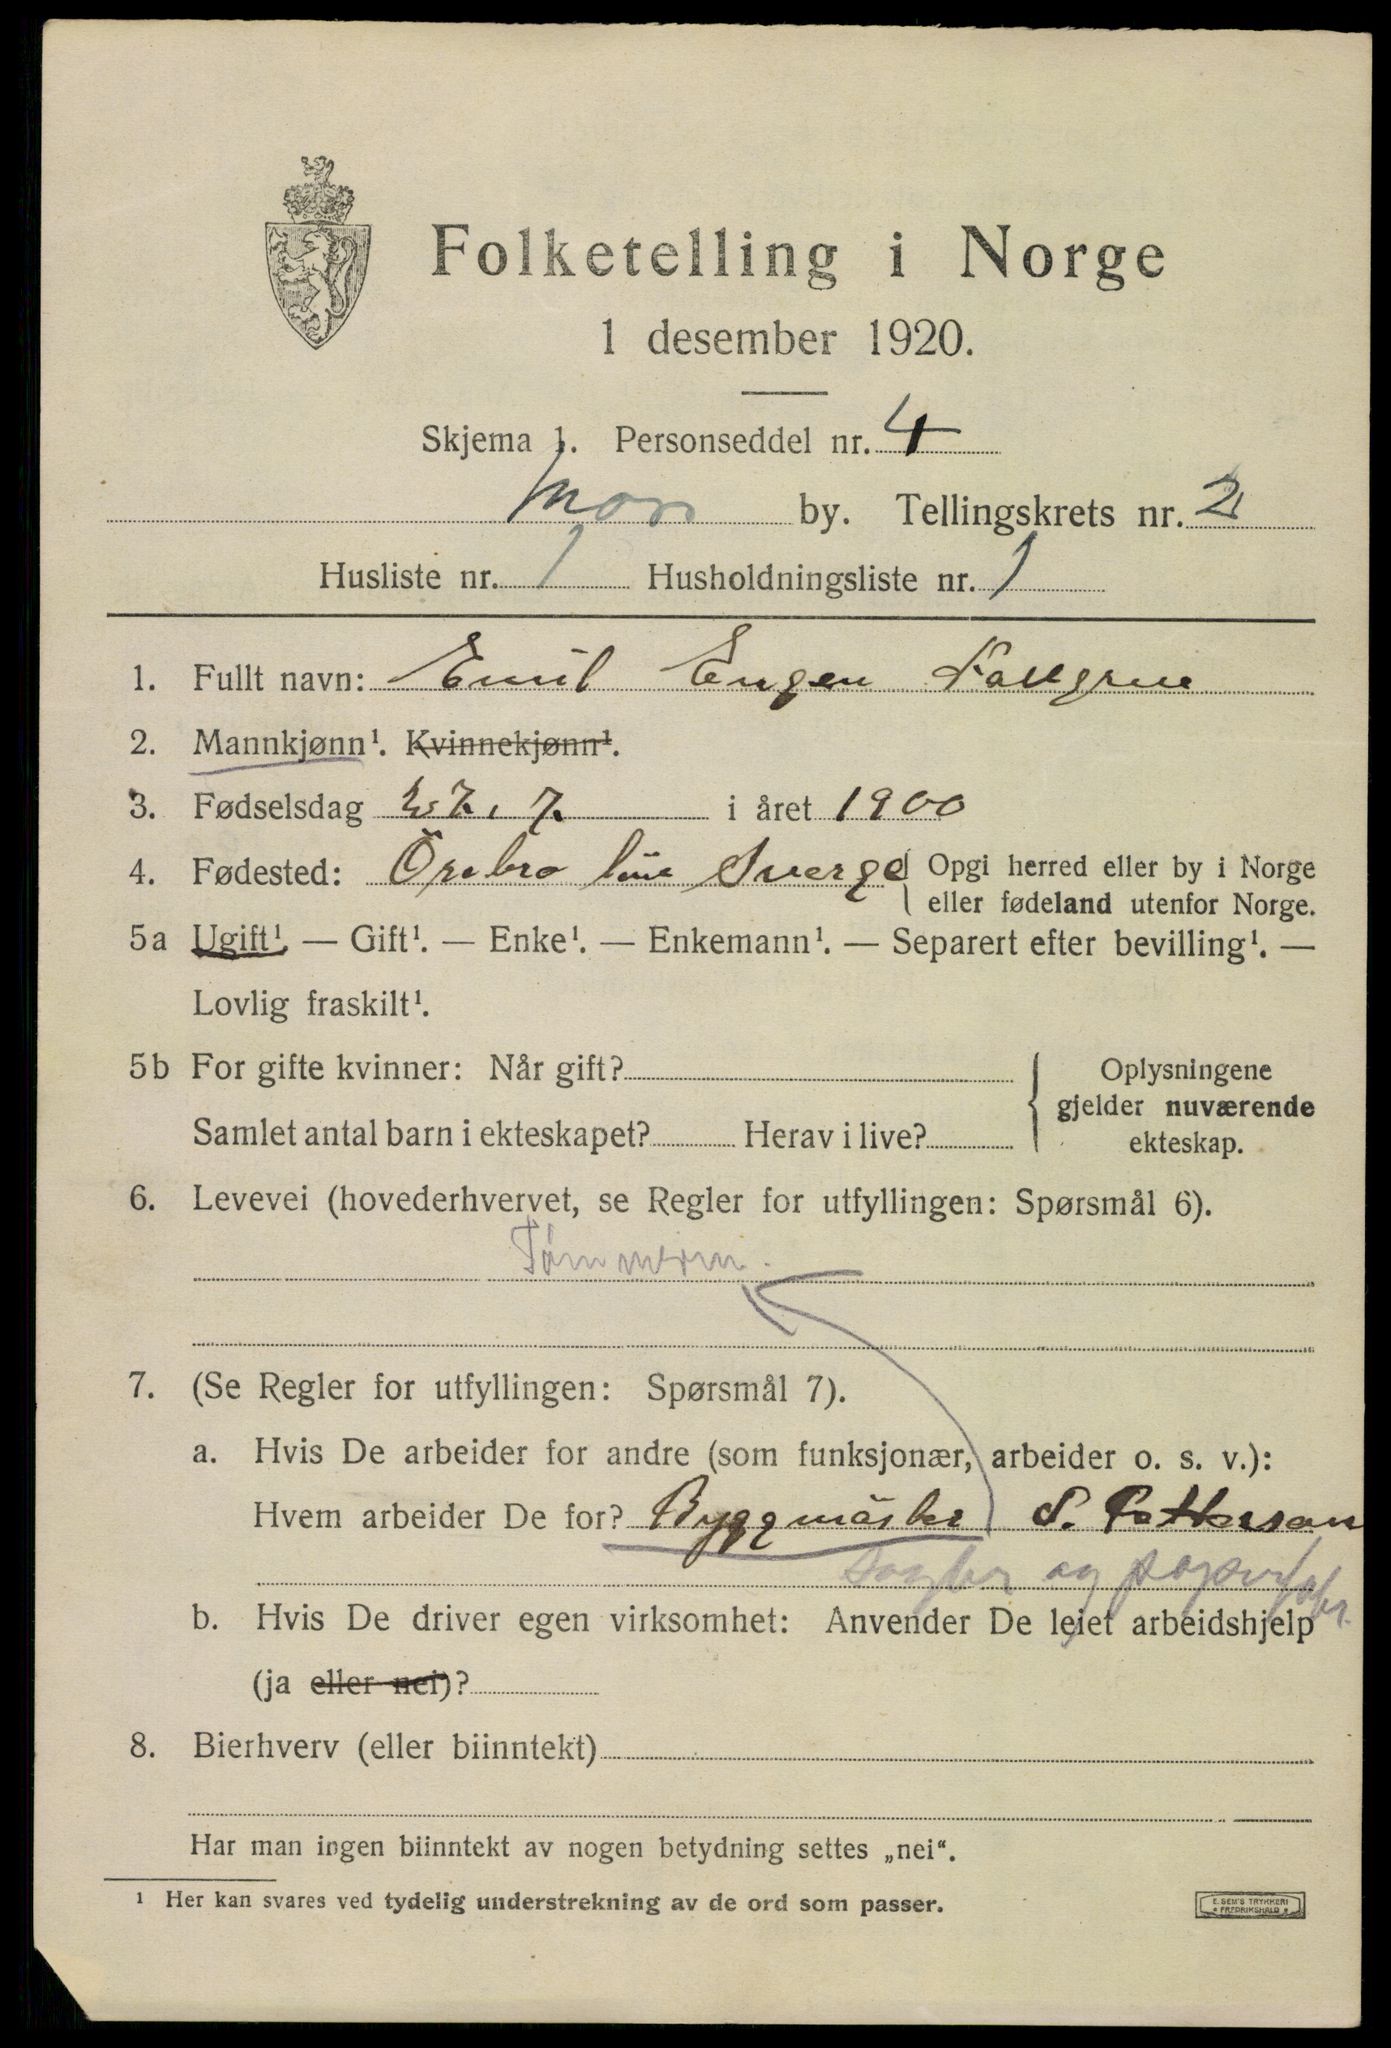 Folketelling i Norge
1 desember 1920.
Skjema 1. Personseddel nr. 4
Moss by. Tellingskrets nr. 2
Husliste nr. 1 Husholdningsliste nr. 1
1. Fullt navn: Emil Eugen
2. Mannkjønn¹. Kvinnekjønn¹.
3. Fødselsdag 27. 7. i året 1900
4. Fødested: Örebro län Sverge { Opgi herred eller by i Norge
eller fødeland utenfor Norge.
5a Ugift¹. — Gift¹. — Enke¹. — Enkemann¹. — Separert efter bevilling¹. —
Lovlig fraskilt¹.
5b For gifte kvinner: Når gift?
Samlet antal barn i ekteskapet? Herav i live?
Oplysningene
gjelder nuværende
ekteskap.
6. Levevei (hovederhvervet, se Regler for utfyllingen: Spørsmål 6).
Tømmerm.
7. (Se Regler for utfyllingen: Spørsmål 7).
a. Hvis De arbeider for andre (som funksjonær, arbeider o. s. v.):
Hvem arbeider De for? Byggmäster S. Patterson
og
b. Hvis De driver egen virksomhet: Anvender De leiet arbeidshjelp
(ja eller nei)?
8. Bierhverv (eller biinntekt)
Har man ingen biinntekt av nogen betydning settes „nei“.
¹ Her kan svares ved tydelig understrekning av de ord som passer.
E. SEM'S TRYKKERI
FREDRIKSHALD